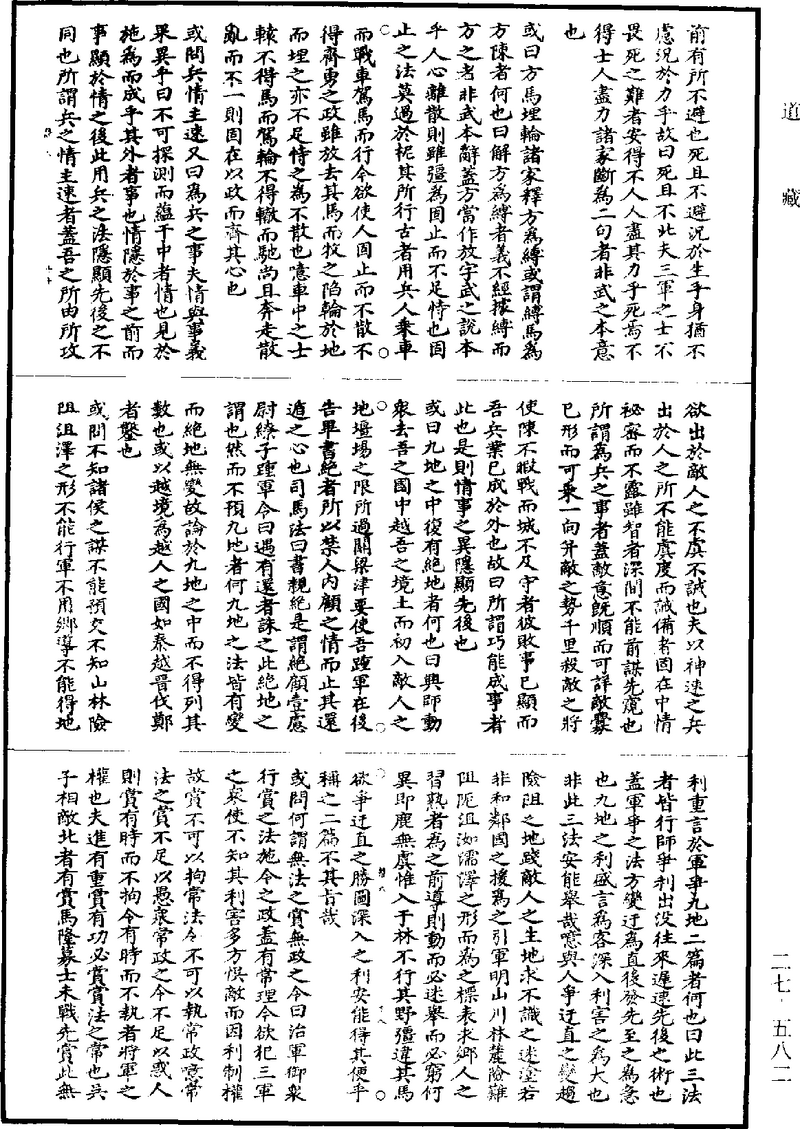 道藏
前有所不避也死且不避況於生乎身猶不
慮況於力乎故曰死且不北夫三軍之士不
畏死之難者安得不人人盡其力乎死焉不
得士人盡力諸家斷為二句者非武之本意
也
或曰方馬埋輪諸家釋方為縛或謂縛馬為
方陳者何也曰解方為縛者義不經據縛而
方之者非武本辭蓋方當作放字武之說本
乎人心離散則雖彊為固止而不足恃也固
止之法莫過於柅其所行古者用兵人乘車
而戰車駕馬而行今欲使人固止而不散不
得齊勇之政雖放去其馬而牧之陷輪於地
而埋之亦不足恃之為不散也噫車中之士
轅不得馬而駕輪不得轍而馳尚且奔走散
亂而不一則固在以政而齊其心也
或問兵情主速又曰為兵之事夫情與事義
果異乎曰不可探測而蘊于中者情也見於
施為而成乎其外者事也情隱於事之前而
事顯於情之後此用兵之法隱顯先後之不
同也所謂兵之情主速者蓋吾之所由所攻
欲出於敵人之不虞不誡也夫以神速之兵
出於人之所不能虞度而誡備者固在中情
祕密而不露雖智者深間不能前謀先窺也
所謂為兵之事者蓋敵意既順而可詳敵釁
已形而可乘一向并敵之勢千里殺敵之將
使陳不暇戰而城不及守者彼敗事已顯而
吾兵業已成於外也故曰所謂巧能成事者
此也是則情事之異隱顯先後也
或曰九地之中復有絕地者何也曰興師動
眾去吾之國中越吾之境土而初入敵人之
地壃場之限所過關梁津要使吾踵軍在後
告畢書絕者所以禁人內顧之情而止其還
遁之心也司馬法曰書親絕是謂絕顧壹慮
尉繚子踵軍令曰遇有還者誅之此絕地之
謂也然而不預九地者何九地之法皆有變
而絕地無變故論於九地之中而不得列其
數也或以越境為越人之國如秦越晉伐鄭
者鑿也
或問不知諸侯之謀不能預交不知山林險
阻沮澤之形不能行軍不用鄉導不能得地
利重言於軍爭九地二篇者何也曰此三法
者皆行師爭利出沒往來遲速先後之術也
蓋軍爭之法方變迂為直後發先至之為急
也九地之利盛言為客深入利害之為大也
非此三法安能舉哉噫與人爭迂直之變趨
險阻之地踐敵人之生地求不識之迷塗若
非和鄰國之援為之引軍明山川林麓險難
阻阨沮洳濡澤之形而為之標表求鄉人之
習熟者為之前導則動而必迷舉而必窮何
異即鹿無虞惟入于林不行其野彊違其馬
欲爭迂直之勝圖深入之利安能得其便乎
稱之二篇不其旨哉
或問何謂無法之賞無政之令曰治軍御眾
行賞之法施令之政蓋有常理今欲犯三軍
之眾使不知其利害多方悞敵而因利制權
故賞不可以拘常法令不可以執常政噫常
法之賞不足以愚眾常政之令不足以惑人
則賞有時而不拘令有時而不執者將軍之
權也夫進有重賞有功必賞賞法之常也吳
子相敵北者有賞馬隆募士未戰先賞此無
二七·五八二